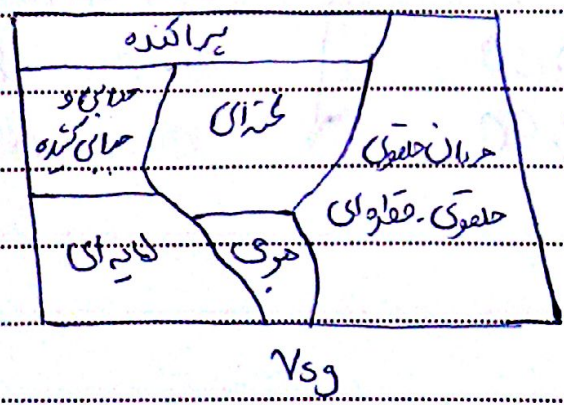 پراکنده
حبابی و
حبابی کشیده
لخته‌ای
جریان حلقوی
حلقوی - قطره‌ای
لایه‌ای
موجی
Vsg